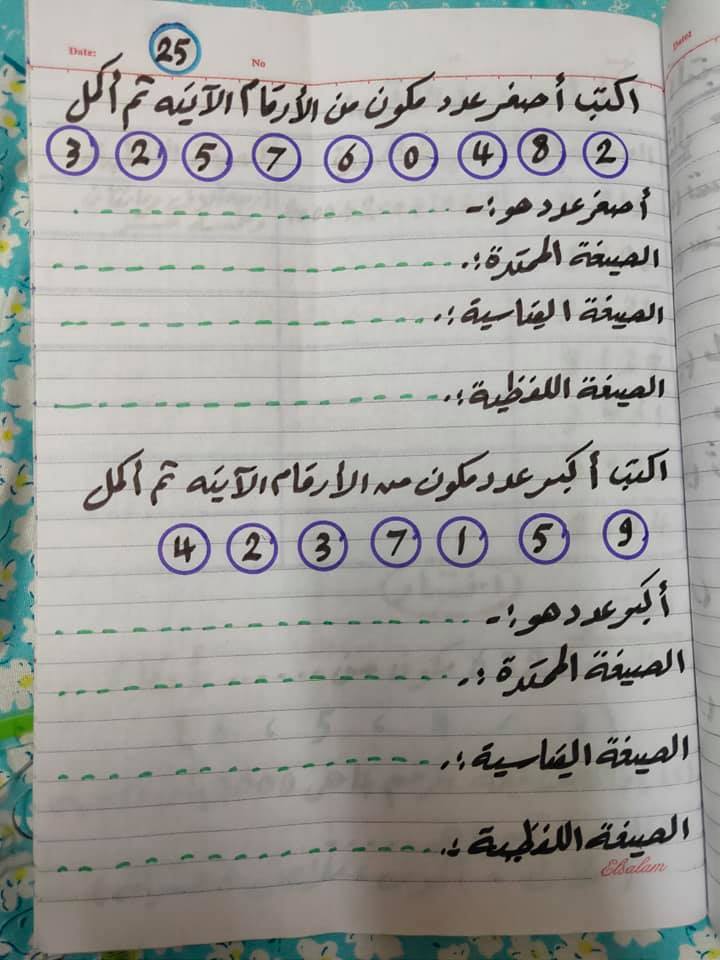 Date:
25
No
اكتب أصغر عدد مكون من الأرقام الآتيه ثم أكمل
3 2 5 7 6 0 4 8 2
أصغر عدد هو :-
الصيغة الممتدة :.
الصيغة القياسية :.
الصيغة اللفظية :.
اكتب أكبر عدد مكون من الأرقام الآتيه ثم أكمل
4 2 3 7 1 5 9
أكبر عدد هو :-
الصيغة الممتدة :.
الصيغة القياسية :.
الصيغة اللفظية :.
Elsalam
Date: